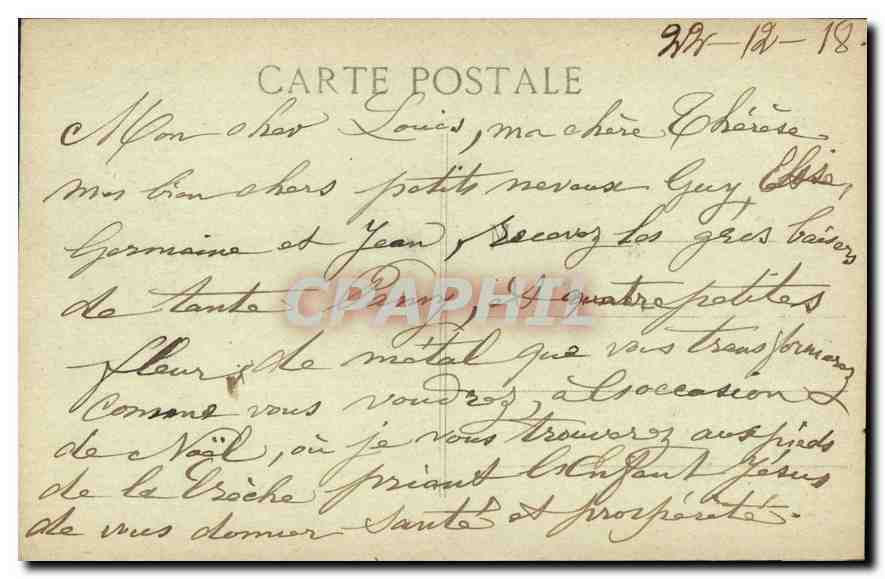 22-12-18.
CARTE POSTALE
Mon cher Louis, ma chère Thérèse
mes bien chers petits neveux Guy, Elsie,
Germaine et Jean, recevez les gros baisers
de tante Fanny, et quatre petites
CPAPHIL
fleurs de métal que vous transformerez
comme vous voudrez, à l'occasion
de Noël, où je vous trouverez aux pieds
de la Crèche priant l'Enfant Jésus
de vous donner santé et prospérité.